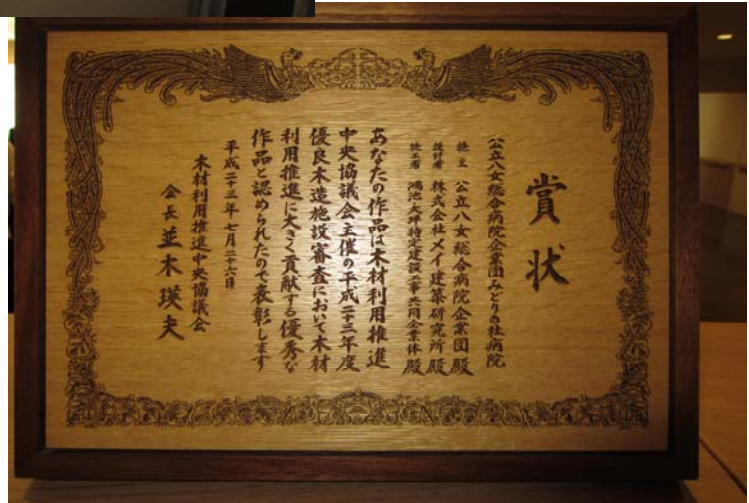 賞状
公立八女総合病院企業団みどりの杜病院
施主 公立八女総合病院企業団 殿
設計者 株式会社メイ建築研究所 殿
施工者 鴻池大坪特定建設工事共同企業体 殿
あなたの作品は木材利用推進
中央協議会主催の平成二十三年度
優良木造施設審査において木材
利用推進に大きく貢献する優秀な
作品と認められたので表彰します
平成二十三年七月二十六日
木材利用推進中央協議会
会長 並木瑛夫